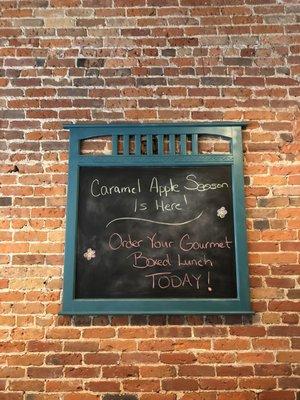 Caramel Apple Season
Is Here!
Order Your Gourmet
Boxed Lunch
TODAY!